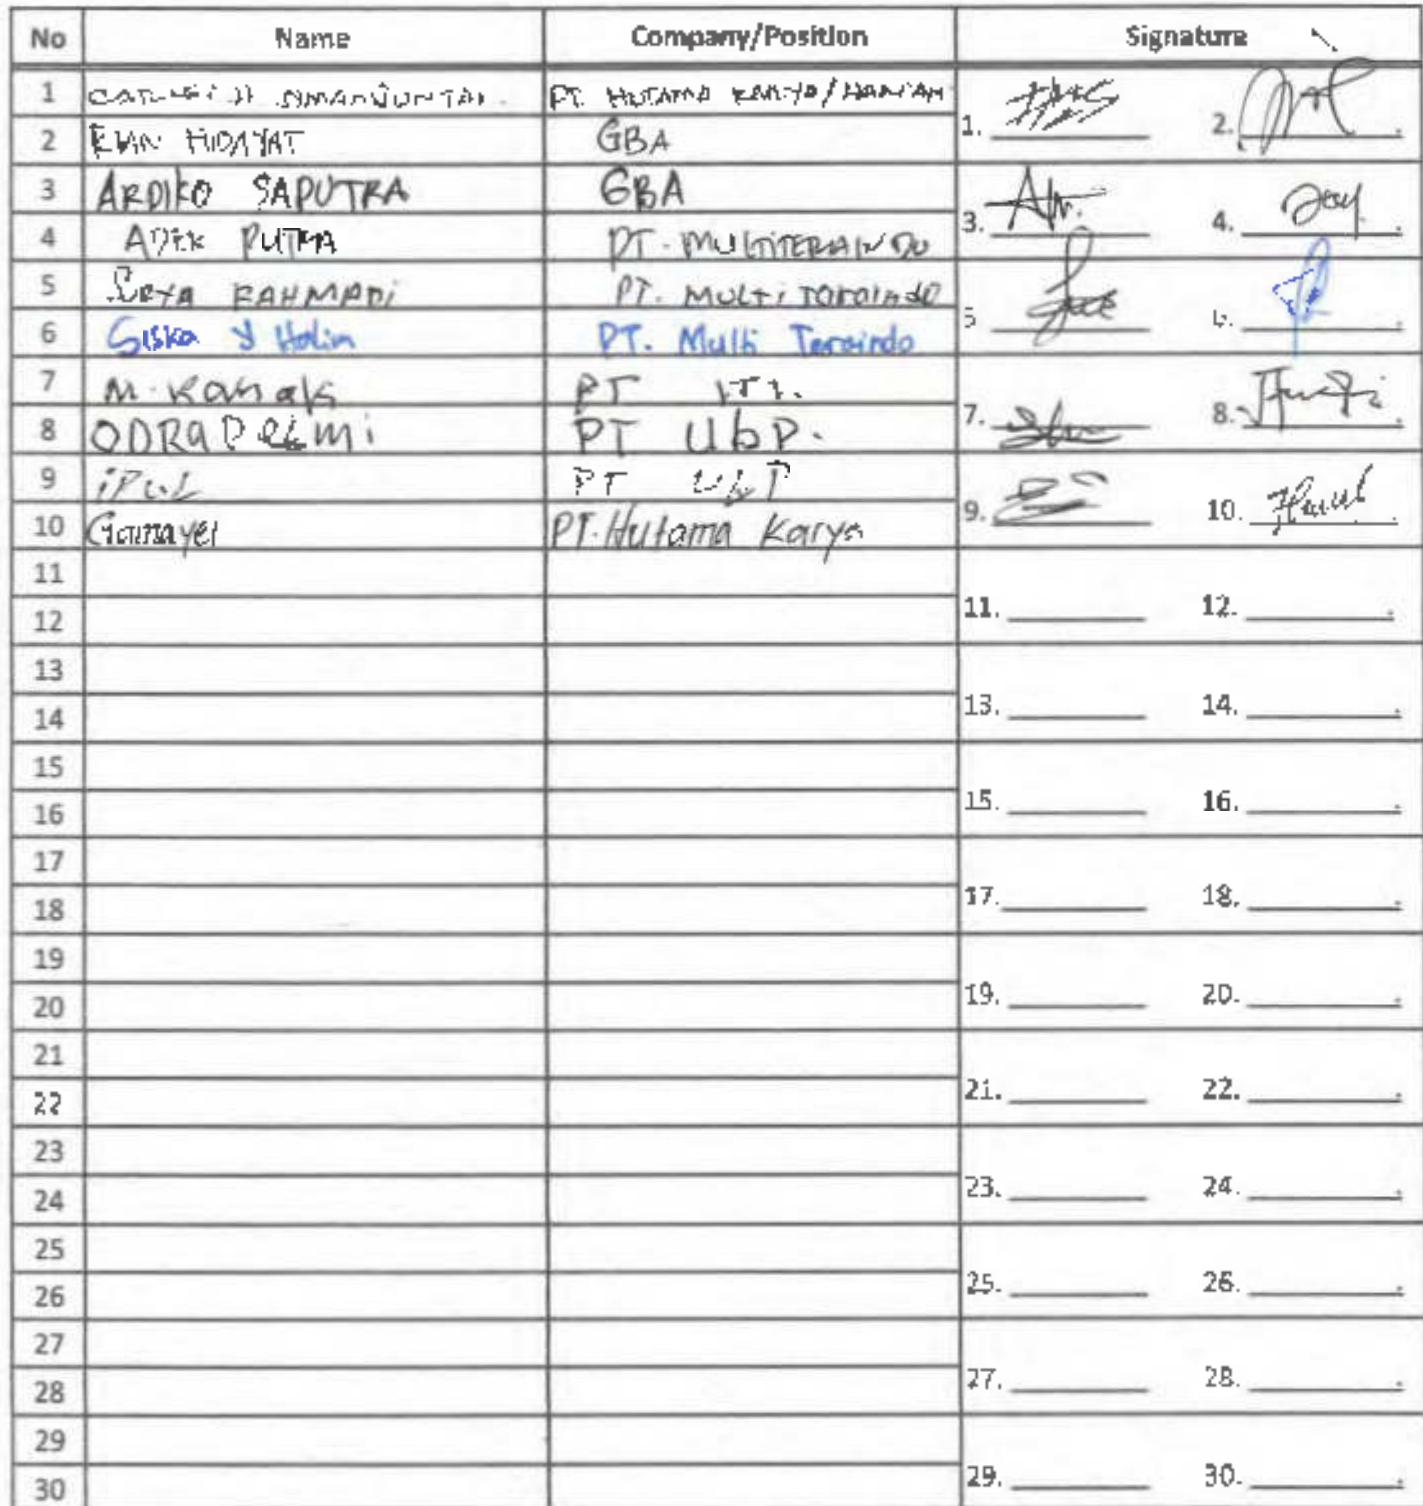 No Name Company/Position Signature
1 SIMANJUNTAK PT. HUTAMA KARYA/
2 HIDAYAT GBA
1. 2. .
3 ARDIKO SAPUTRA GBA
4 ADEK PUTRA PT. MULTITERAINDO
3. 4. .
5 RAHMADI PT. MULTi TaraindO
6 Siska Y Halim PT. Multi Teraindo
5. 6. .
7 M. PT
8 ODRA DELMi PT UbP.
7. 8. .
9 iPUL PT UbP
10 Gamayel PT. Hutama Karya
9. 10. .
11
12
11. 12. .
13
14
13. 14. .
15
16
15. 16. .
17
18
17. 18. .
19
20
19. 20. .
21
22
21. 22. .
23
24
23. 24. .
25
26
25. 26. .
27
28
27. 28. .
29
30
29. 30. .